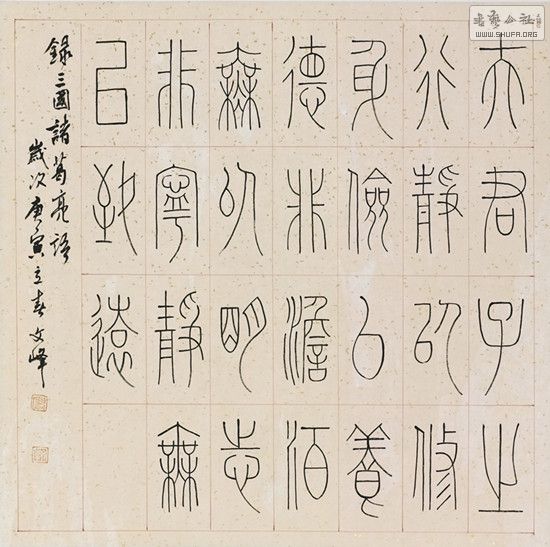 夫君子之
行靜以修
身儉以養
德非澹泊
無以明志
非寧靜無
以致遠
錄三國諸葛亮語
歲次庚寅立春文峰
书艺公社
WWW.SHUFA.ORG